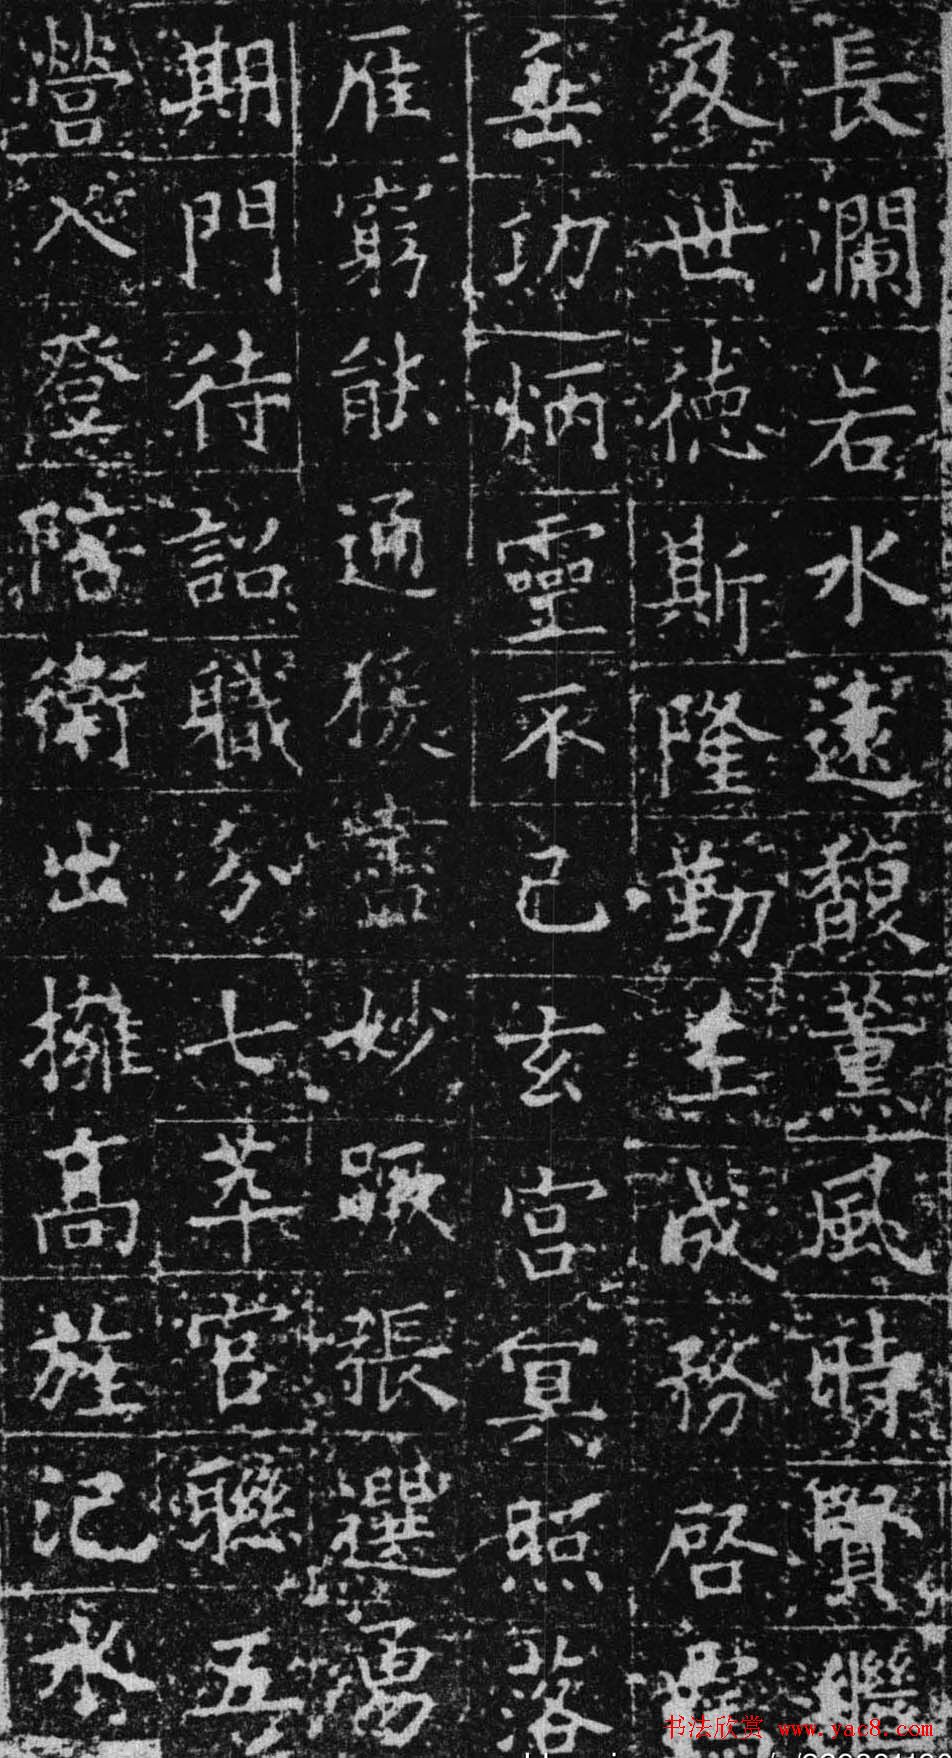 長瀾若水遠馥薰風時賢繼
及世德斯隆勤王成務啓姓
垂功炳靈不已玄宮冥照落
雁窮能通猨書妙蹶張選勇
期門待詔職分七萃官聯五
營入登階衛出擁高旌汜水
书法欣赏 www.yac8.com